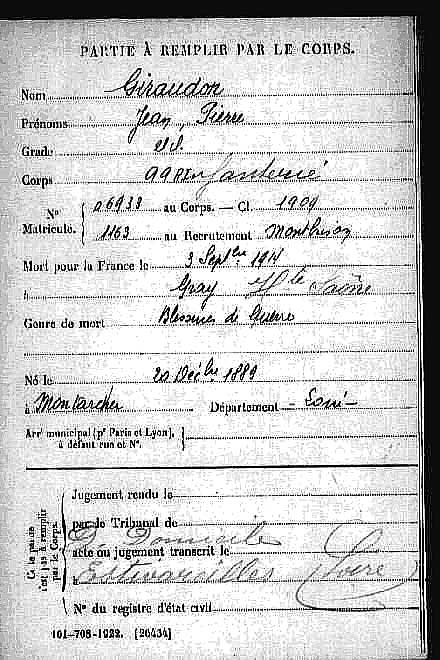 PARTIE À REMPLIR PAR LE CORPS.
Nom Giraudon
Prénoms Jean, Pierre
Grade
Corps 99 RI Infanterie
N° Matricule. 06933 au Corps. — Cl. 1909
1163 au Recrutement Montbrison
Mort pour la France le 3 Septbre 1914
à Gray Hte Saône
Genre de mort Blessures de Guerre
Né le 20 Décbre 1889
à Montarcher Département - Loire -
Arrt municipal (pr Paris et Lyon), à défaut rue et N°.
Cette partie n'est pas à remplir par le Corps.
Jugement rendu le
par le Tribunal de
D. Domicile
acte ou jugement transcrit le
à Estivareilles Loire
N° du registre d'état civil
101-708-1922. [26434]